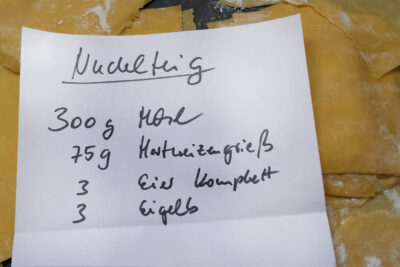 Nudelteig
300g Mehl
75g Hartweizengrieß
3 Eier komplett
3 Eigelb